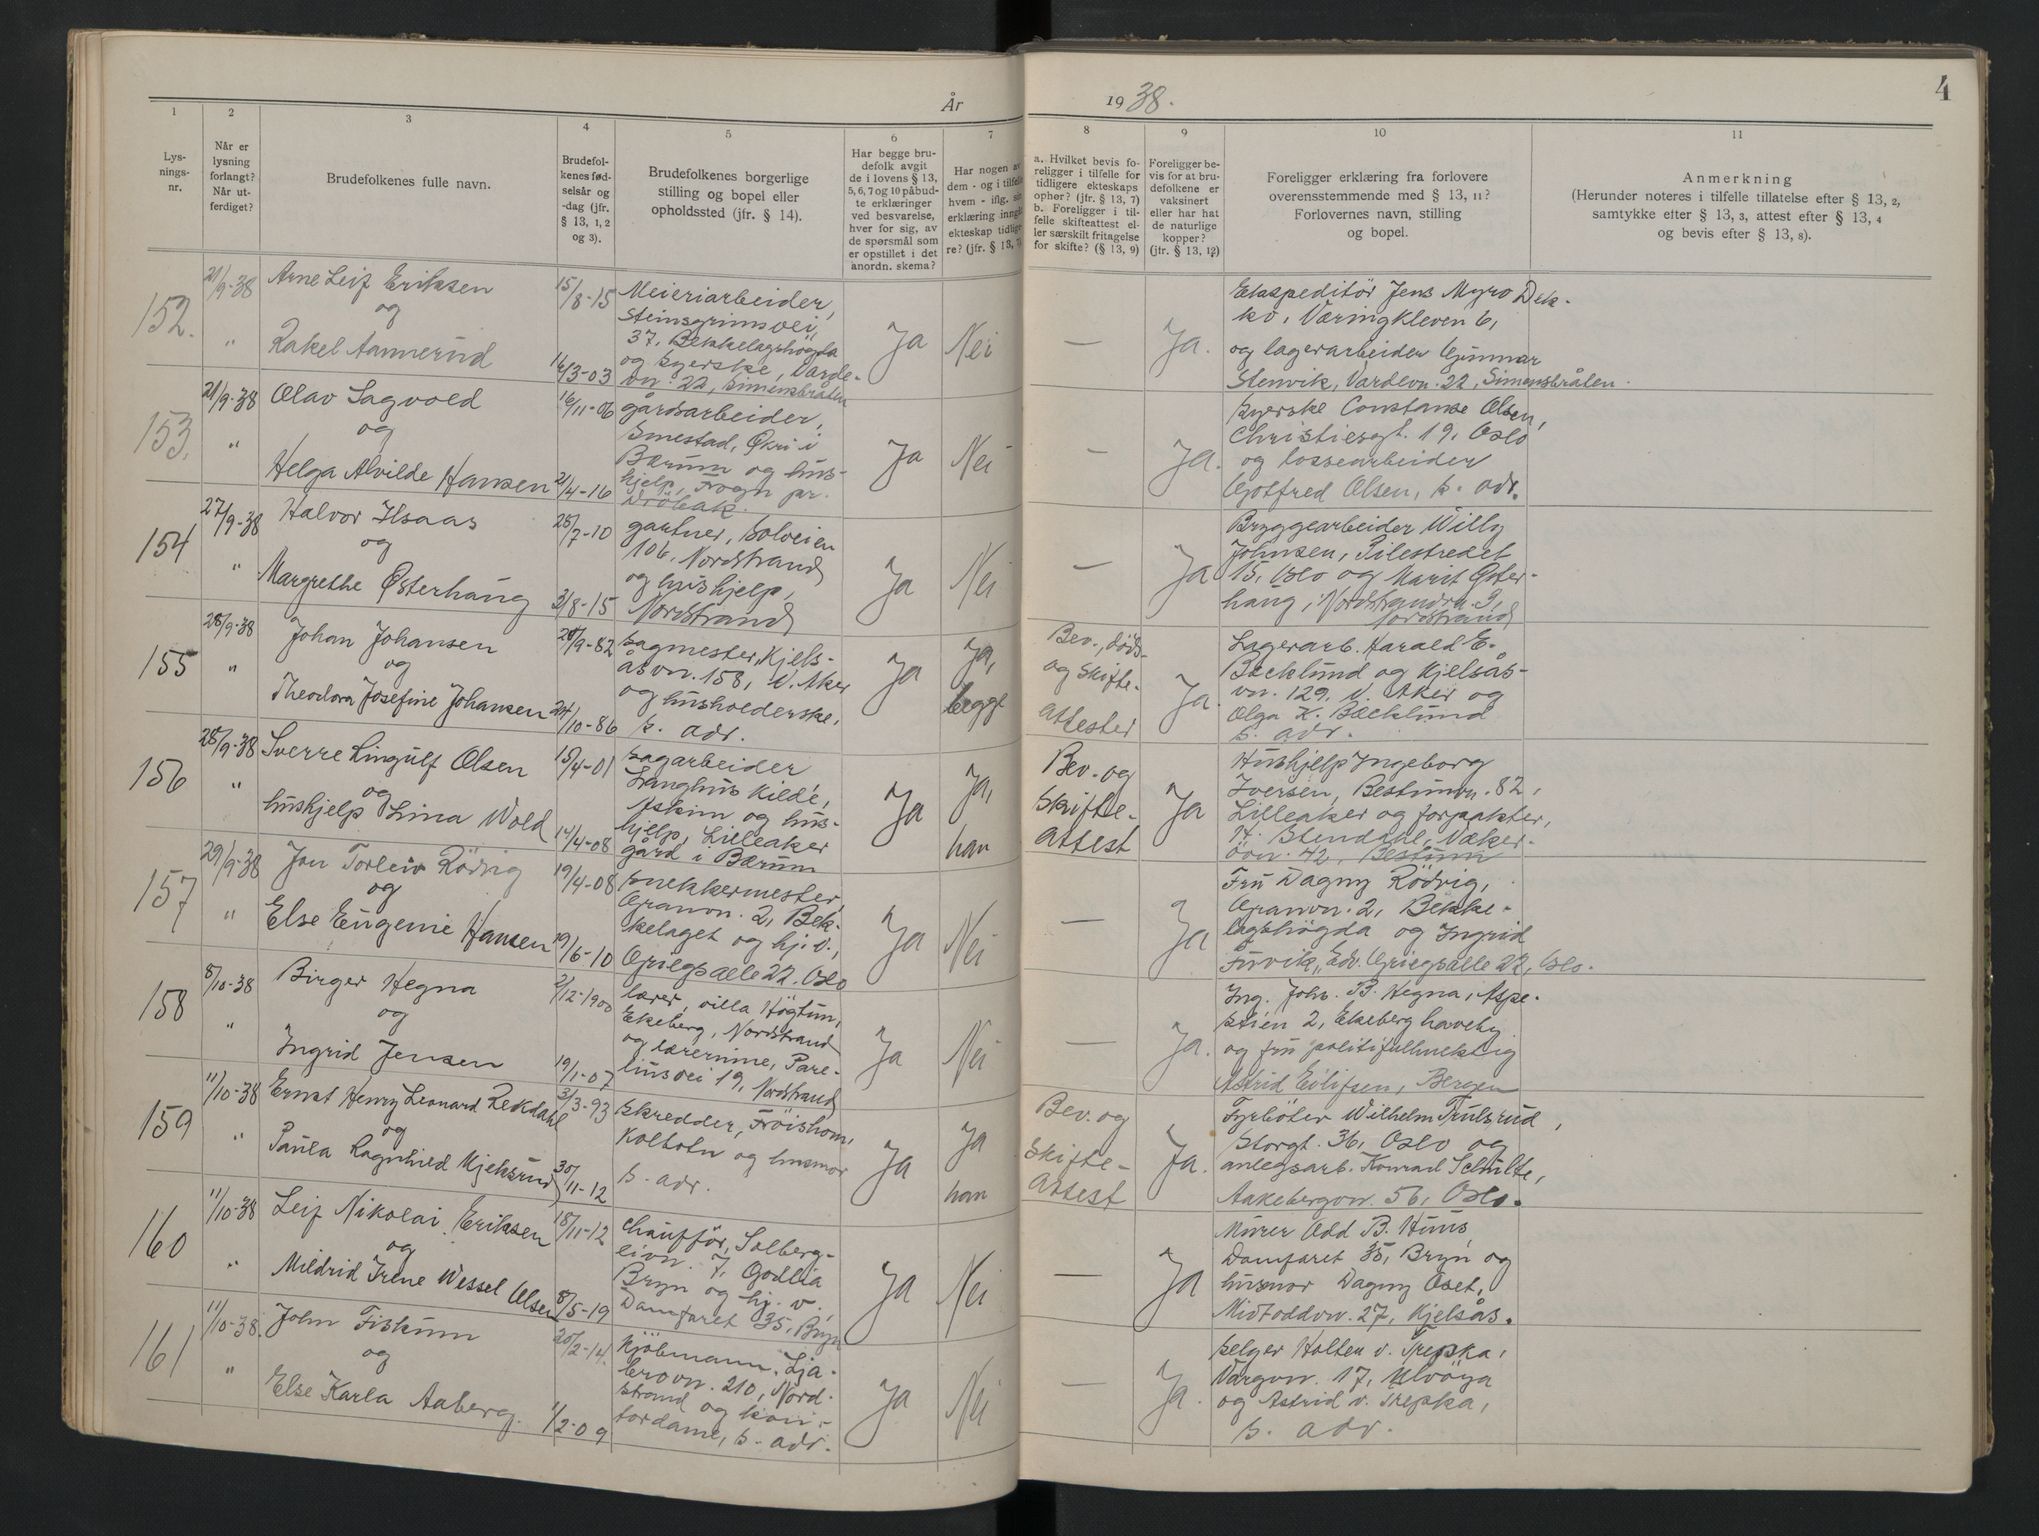 År
1938.
4
1
2
3
4
5
6
7
8
9
10
11
Lys-
nings-
nr.
Når er
lysning
forlangt?
Når ut-
ferdiget?
Brudefolkenes fulle navn.
Brudefol-
kenes fød-
selsår og
-dag (jfr.
§ 13, 1, 2
og 3).
Brudefolkenes borgerlige
stilling og bopel eller
opholdssted (jfr. § 14).
Har begge bru-
defolk avgit
de i lovens § 13,
5, 6, 7 og 10 påbud-
te erklæringer
ved besvarelse,
hver for sig, av
de spørsmål som
er opstillet i det
anordn. skema?
Har nogen av
dem - og i tilfelle
hvem - iflg. sin
erklæring inngått
ekteskap tidlige-
re? (jfr. § 13, 7)
a. Hvilket bevis fo-
religger i tilfelle for
tidligere ekteskaps
ophør? (jfr. § 13, 7)
b. Foreligger i til-
felle skifteattest el-
ler særskilt fritagelse
for skifte? (§ 13, 9)
Foreligger be-
vis for at bru-
defolkene er
vaksinert
eller har hat
de naturlige
kopper?
(jfr. § 13, 12)
Foreligger erklæring fra forlovere
overensstemmende med § 13, 11?
Forlovernes navn, stilling
og bopel.
Anmerkning
(Herunder noteres i tilfelle tillatelse efter § 13, 2,
samtykke efter § 13, 3, attest efter § 13, 4
og bevis efter § 13, 8).
152.
21/9-38
"
Arne Leif Eriksen
og
Rakel Aannerud
15/8-15
14/3-03
Meieriarbeider,
Steinsgrimsvei,
37, Bekkelagshögda
og syerske, Varde-
vn. 22, Simensbråten
Ja
Nei
—
Ja.
Ekspeditör Jens Myro Dek-
ko, Væringkleven 6,
og lagerarbeider Gunnar
Stenvik, Vardevn. 22, Simensbråten.
153.
21/9-38
"
Olav Sagvold
og
Helga Alvilde Hansen
16/11-06
21/4-16
gårdsarbeider,
Smestad, Økri i
Bærum og hus-
hjelp, Frogn pr.
Dröbak.
Ja
Nei
—
Ja.
Syerske Constanse Olsen,
Christiesgt. 19, Oslo
og lossearbeider
Gotfred Olsen, s. adr.
154
27/9-38
"
Halvor Ilsaas
og
Margrethe Østerhaug
25/7-10
3/8-15
gartner, Solveien
106, Nordstrand
og hushjelp,
Nordstrand
Ja
Nei
—
Ja
Bryggearbeider Willy
Johnsen, Pilestredet
15, Oslo og Marit Øster-
haug, Nordstrandv. 9,
Nordstrand
155
28/9-38
"
Johan Johansen
og
Theodora Josefine Johansen
20/9-82
24/10-86
Sagmester, Kjels-
åsvn. 158, V. Aker
og husholderske,
s. adr.
Ja
Ja,
begge
Bev., døds-
og skifte-
attester
Ja.
Lagerarb. Harald E.
Bäcklund og Kjelsås-
vn. 129, V. Aker og
Olga K. Bæcklund
s. adr.
156
28/9-38
"
Sverre Lingulf Olsen
og
hushjelp Lina Wold
13/4-01
14/4-08
Sagarbeider
Langhus kilde,
Askim og hus-
hjelp, Lilleaker
gård i Bærum
Ja
Ja,
han
Bev. og
skifte-
attest
Ja
Hushjelp Ingeborg
Iversen, Bestumvn. 82,
Lilleaker og forpakter,
H. Stendahl, Væker-
övn. 42, Bestum
157
29/9-38
"
Jon Torleiv Rödvig
og
Else Eugenie Hansen
19/4-08
19/6-10
Snekkermester,
Granvn. 2, Bek-
kelaget og hj. v.,
Griegsalle 22, Oslo
Ja
Nei
—
Ja
Fru Dagny Rödvig,
Granvn. 2, Bekke-
lagshögda og Ingrid
Furvik, Edv. Griegsalle 22, Oslo.
158
8/10-38
"
Birger Hegna
og
Ingrid Jensen
2/12-1900
19/1-07
lærer, villa Högtun,
Ekeberg, Nordstrand
og lærerinne, Pare-
liusvei 19, Nordstrand
Ja
Nei
—
Ja.
Ing. Johs. B. Hegna, Aspe-
stien 2, Ekeberg haveby
og fru politifullmektig
Astrid Eilifsen, Bergen
159
11/10-38
"
Ernst Henry Leonard Rekdahl
og
Paula Ragnhild Mjeksrud
3/3-93
30/11-12
Skredder, Fröishom,
Kolbotn og husmor
s. adr.
Ja
Ja
han
Bev. og
skifte-
attest
Ja.
Fyrböter Wilhelm Trulsrud,
Storgt. 36, Oslo og
anlegsarb. Konrad Schulte,
Aakebergvn. 56, Oslo.
160
11/10-38
"
Leif Nikolai Eriksen
og
Mildrid Irene Wessel Olsen
18/11-12
8/5-19
Chaufför, Solberg-
livn. 7, Godlia
Bryn og hj. v.,
Damfaret 35, Bryn
Ja
Nei
—
Ja
Murer Odd B. Huus,
Damfaret 35, Bryn og
husmor Dagny Oset,
Midtoddvn. 27, Kjelsås.
161
11/10-38.
"
John Fiskum
og
Else Karla Aaberg.
20/2-14.
1/2-09
Kjöbmann, Lja-
brovn. 210, Nord-
strand og kon-
tordame, s. adr.
Ja
Nei
—
Ja.
Selger Holten v. Trepka,
Vargvn. 17, Ulvöya
og Astrid v. Trepka,
s. adr.